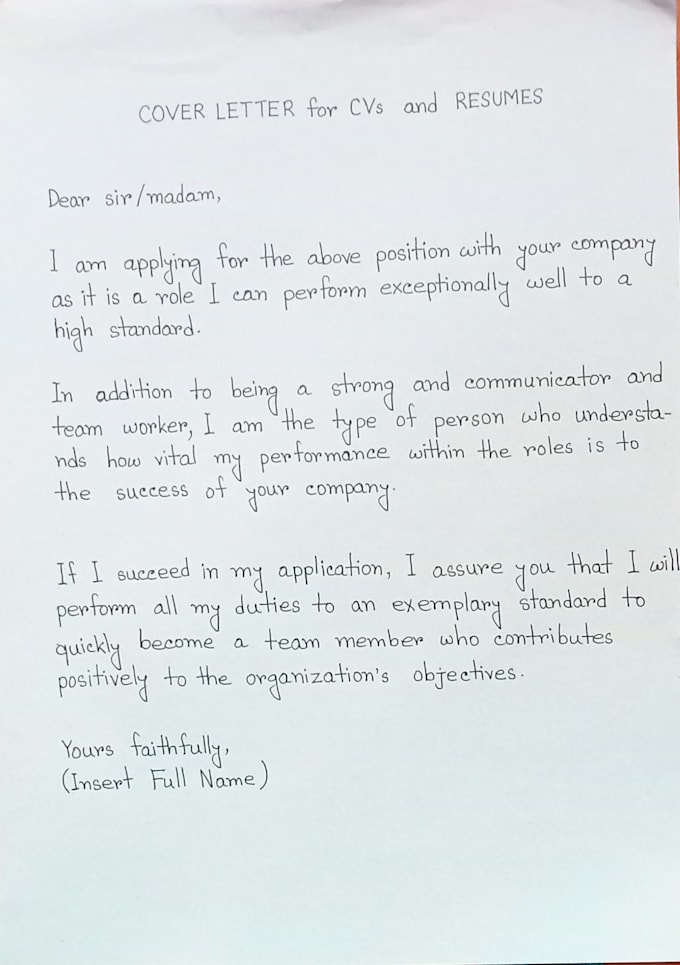 COVER LETTER for CVs and RESUMES
Dear sir/madam,
I am applying for the above position with your company
as it is a role I can perform exceptionally well to a
high standard.
In addition to being a strong and communicator and
team worker, I am the type of person who understa-
nds how vital my performance within the roles is to
the success of your company.
If I succeed in my application, I assure you that I will
perform all my duties to an exemplary standard to
quickly become a team member who contributes
positively to the organization's objectives.
Yours faithfully,
(Insert Full Name)